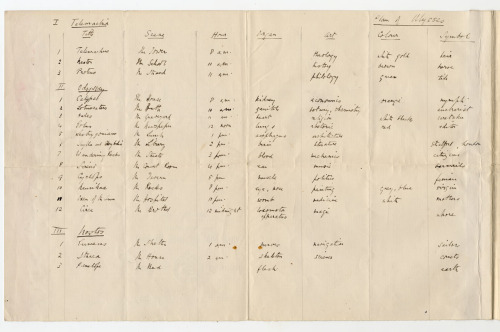 Plan of Ulysses
I Telemachia
Title Scene Hour Organ Art Colour Symbol
1 Telemachus The Tower 8 am theology white gold heir
2 Nestor The School 10 am history brown horse
3 Proteus The Strand 11 am philology green tide
II Odyssey
1 Calypso The House 8 am kidney economics orange nymph
2 Lotuseaters The Bath 10 am genitals botany, chemistry eucharist
3 Hades The Graveyard 11 am heart religion white black caretaker
4 Eolus The Newspaper 12 noon lungs rhetoric red editor
5 The Lunch 1 pm esophagus architecture
6 Scylla and Charybdis The Library 2 pm brain literature Stratford, London
7 Wandering Rocks The Streets 3 pm blood mechanics citizens
8 Sirens The Concert Room 4 pm ear music barmaids
9 Cyclops The Tavern 5 pm muscle politics fenian
10 Nausikaa The Rocks 8 pm eye, nose painting grey, blue virgin
11 Oxen of the Sun The Hospital 10 pm womb medicine white mothers
12 Circe The Brothel 12 midnight locomotor apparatus magic whore
III Nostos
1 Eumaeus The Shelter 1 am nerves navigation sailors
2 Ithaca The House 2 am skeleton science comets
3 Penelope The Bed flesh earth